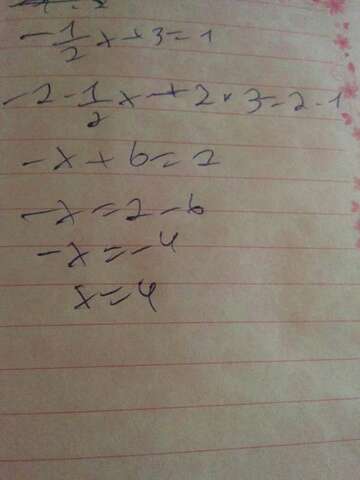 -1/2 x + 3 = 1
-2 · 1/2 x + 2 · 3 = 2 · 1
-x + 6 = 2
-x = 2 - 6
-x = -4
x = 4